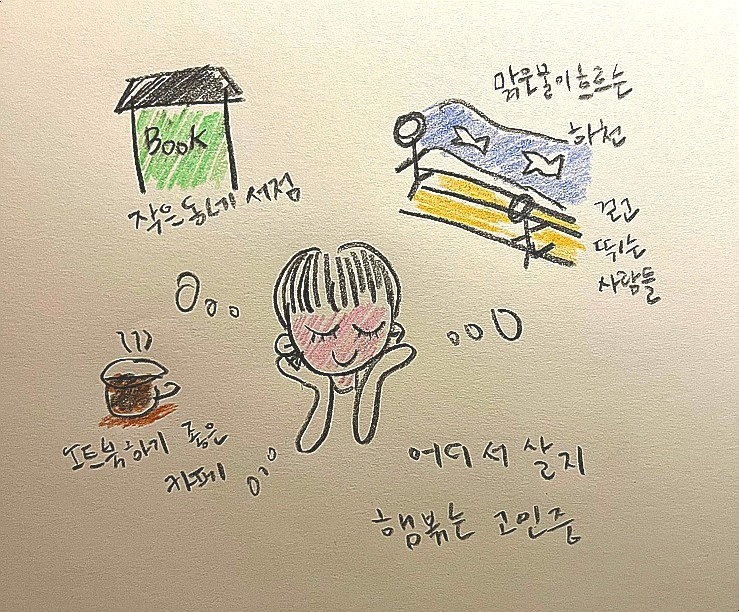 BOOK
작은 동네 서점
맑은물이 흐르는
하천
걷고
뛰는
사람들
노트북하기 좋은
카페
어디서 살지
행볶는 고민중